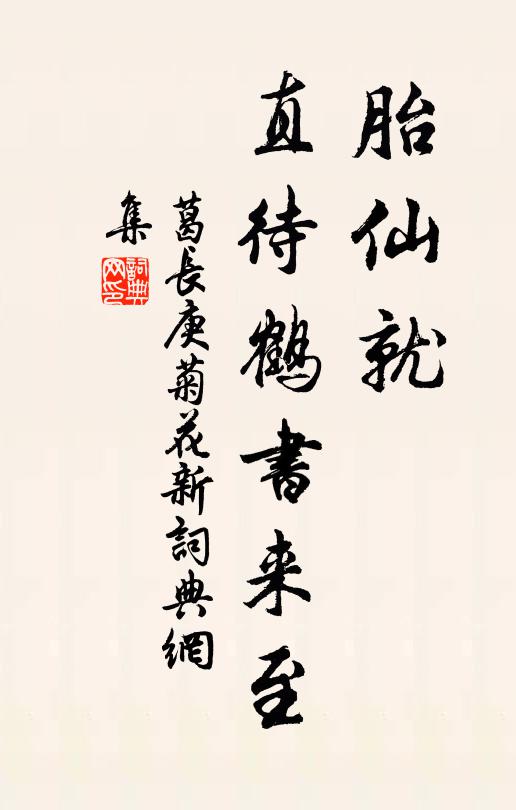 胎仙就
直待鹤書来至
葛長庚菊花新詞典網
集
詞典
网印